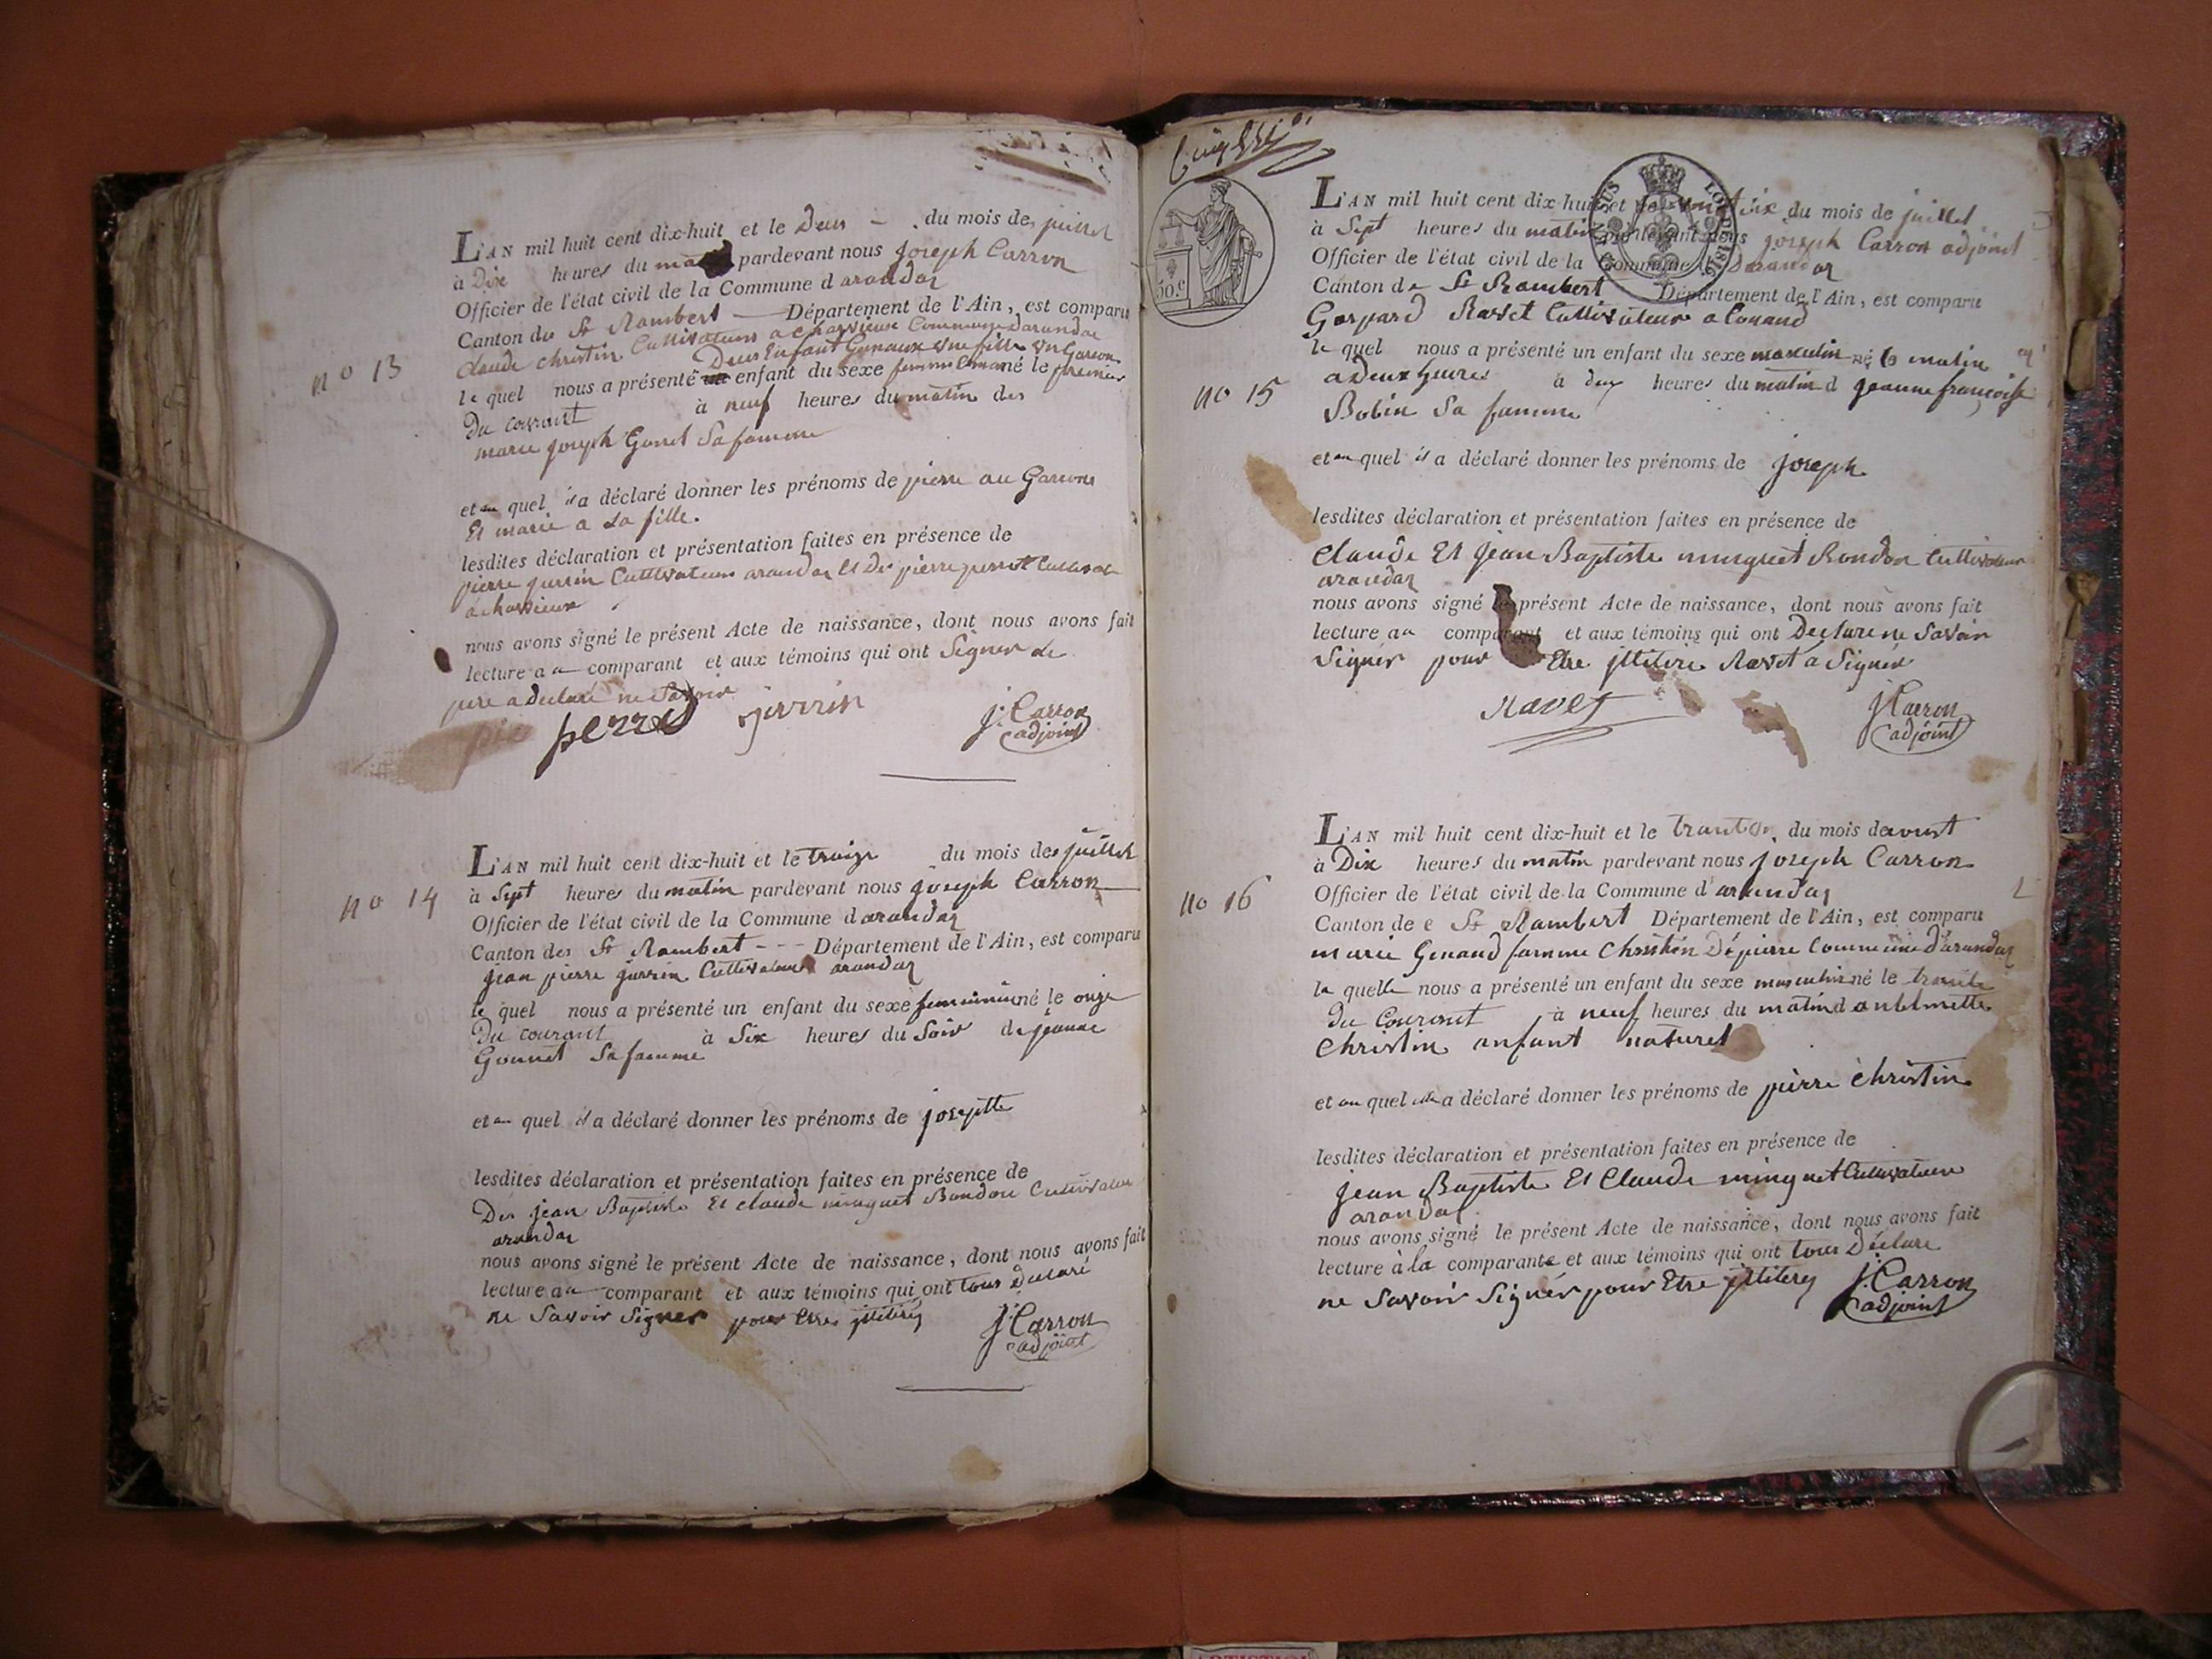 L'AN mil huit cent dix-huit et le Deus du mois de juillet
à Dix heures du pardevant nous Joseph Carron
Officier de l'état civil de la Commune d arandas
Canton de St Rambert Département de l'Ain, est comparu
Claude christin Cultivateurs a charvieux Commune Darandas
Deus Enfant Gumaux une fille un Garcon
no 13
le quel nous a présenté enfant du sexe né le premier
du courant à neuf heures du matin des
marie joseph Gonet Sa famme
et au quel il a déclaré donner les prénoms de pierre au Garcons
Et marie a La fille.
lesdites déclaration et présentation faites en présence de
pierre Cultivateurs arandas Et De pierre
a charvieux
nous avons signé le présent Acte de naissance, dont nous avons fait
lecture au comparant et aux témoins qui ont Signer Le
pere a declaré ne Savoir
J. Carron
adjoint
L'AN mil huit cent dix-huit et le traize du mois de juillet
à Sept heures du matin pardevant nous joseph Carron
no 14
Officier de l'état civil de la Commune d arandas
Canton de St Rambert - - - Département de l'Ain, est comparu
jean pierre Cultivateur arandas
le quel nous a présenté un enfant du sexe né le onze
Du courant à Six heures du Soir de jeanne
Gounet Sa famme
et au quel il a déclaré donner les prénoms de josepette
lesdites déclaration et présentation faites en présence de
De jean Baptiste Et claude minguet Cultivateur
arandas
nous avons signé le présent Acte de naissance, dont nous avons fait
lecture au comparant et aux témoins qui ont tous Declaré
ne Savoir Signer pour Etre
J. Carron
adjoint
L'AN mil huit cent dix-huit et le du mois de juillet
à Sept heures du matin pardevant nous joseph Carron adjoint
Officier de l'état civil de la Commune Darandas
Canton de St Rambert Département de l'Ain, est comparu
50.c
Gaspard Ravet Cultivateur a Conand
le quel nous a présenté un enfant du sexe masculin né matin
a Deux heures à deux heures du matin d jeanne francoise
no 15
Bobin Sa famme
et au quel il a déclaré donner les prénoms de joseph
lesdites déclaration et présentation faites en présence de
Claude Et jean Baptiste minguet Rondon Cultivateur
arandas
nous avons signé le présent Acte de naissance, dont nous avons fait
lecture au comparant et aux témoins qui ont Declare ne Savoir
Signer pour Etre Ravet a Signer
Ravet
J. Carron
adjoint
L'AN mil huit cent dix-huit et le du mois d aoust
à Dix heures du matin pardevant nous joseph Carron
no 16
Officier de l'état civil de la Commune d' arandas
Canton de St Rambert Département de l'Ain, est comparu
marie Genaud famme Christin De pierre Commune D'arandas
la quelle nous a présenté un enfant du sexe masculin né le trante
du Courant à neuf heures du matin d antelmette
Christin anfant naturel
et au quel elle a déclaré donner les prénoms de pierre christin
lesdites déclaration et présentation faites en présence de
jean Baptiste Et Claude minguet Cultivateur
arandas
nous avons signé le présent Acte de naissance, dont nous avons fait
lecture à la comparante et aux témoins qui ont tous Déclare
ne Savoir Signer pour Etre
J. Carron
adjoint